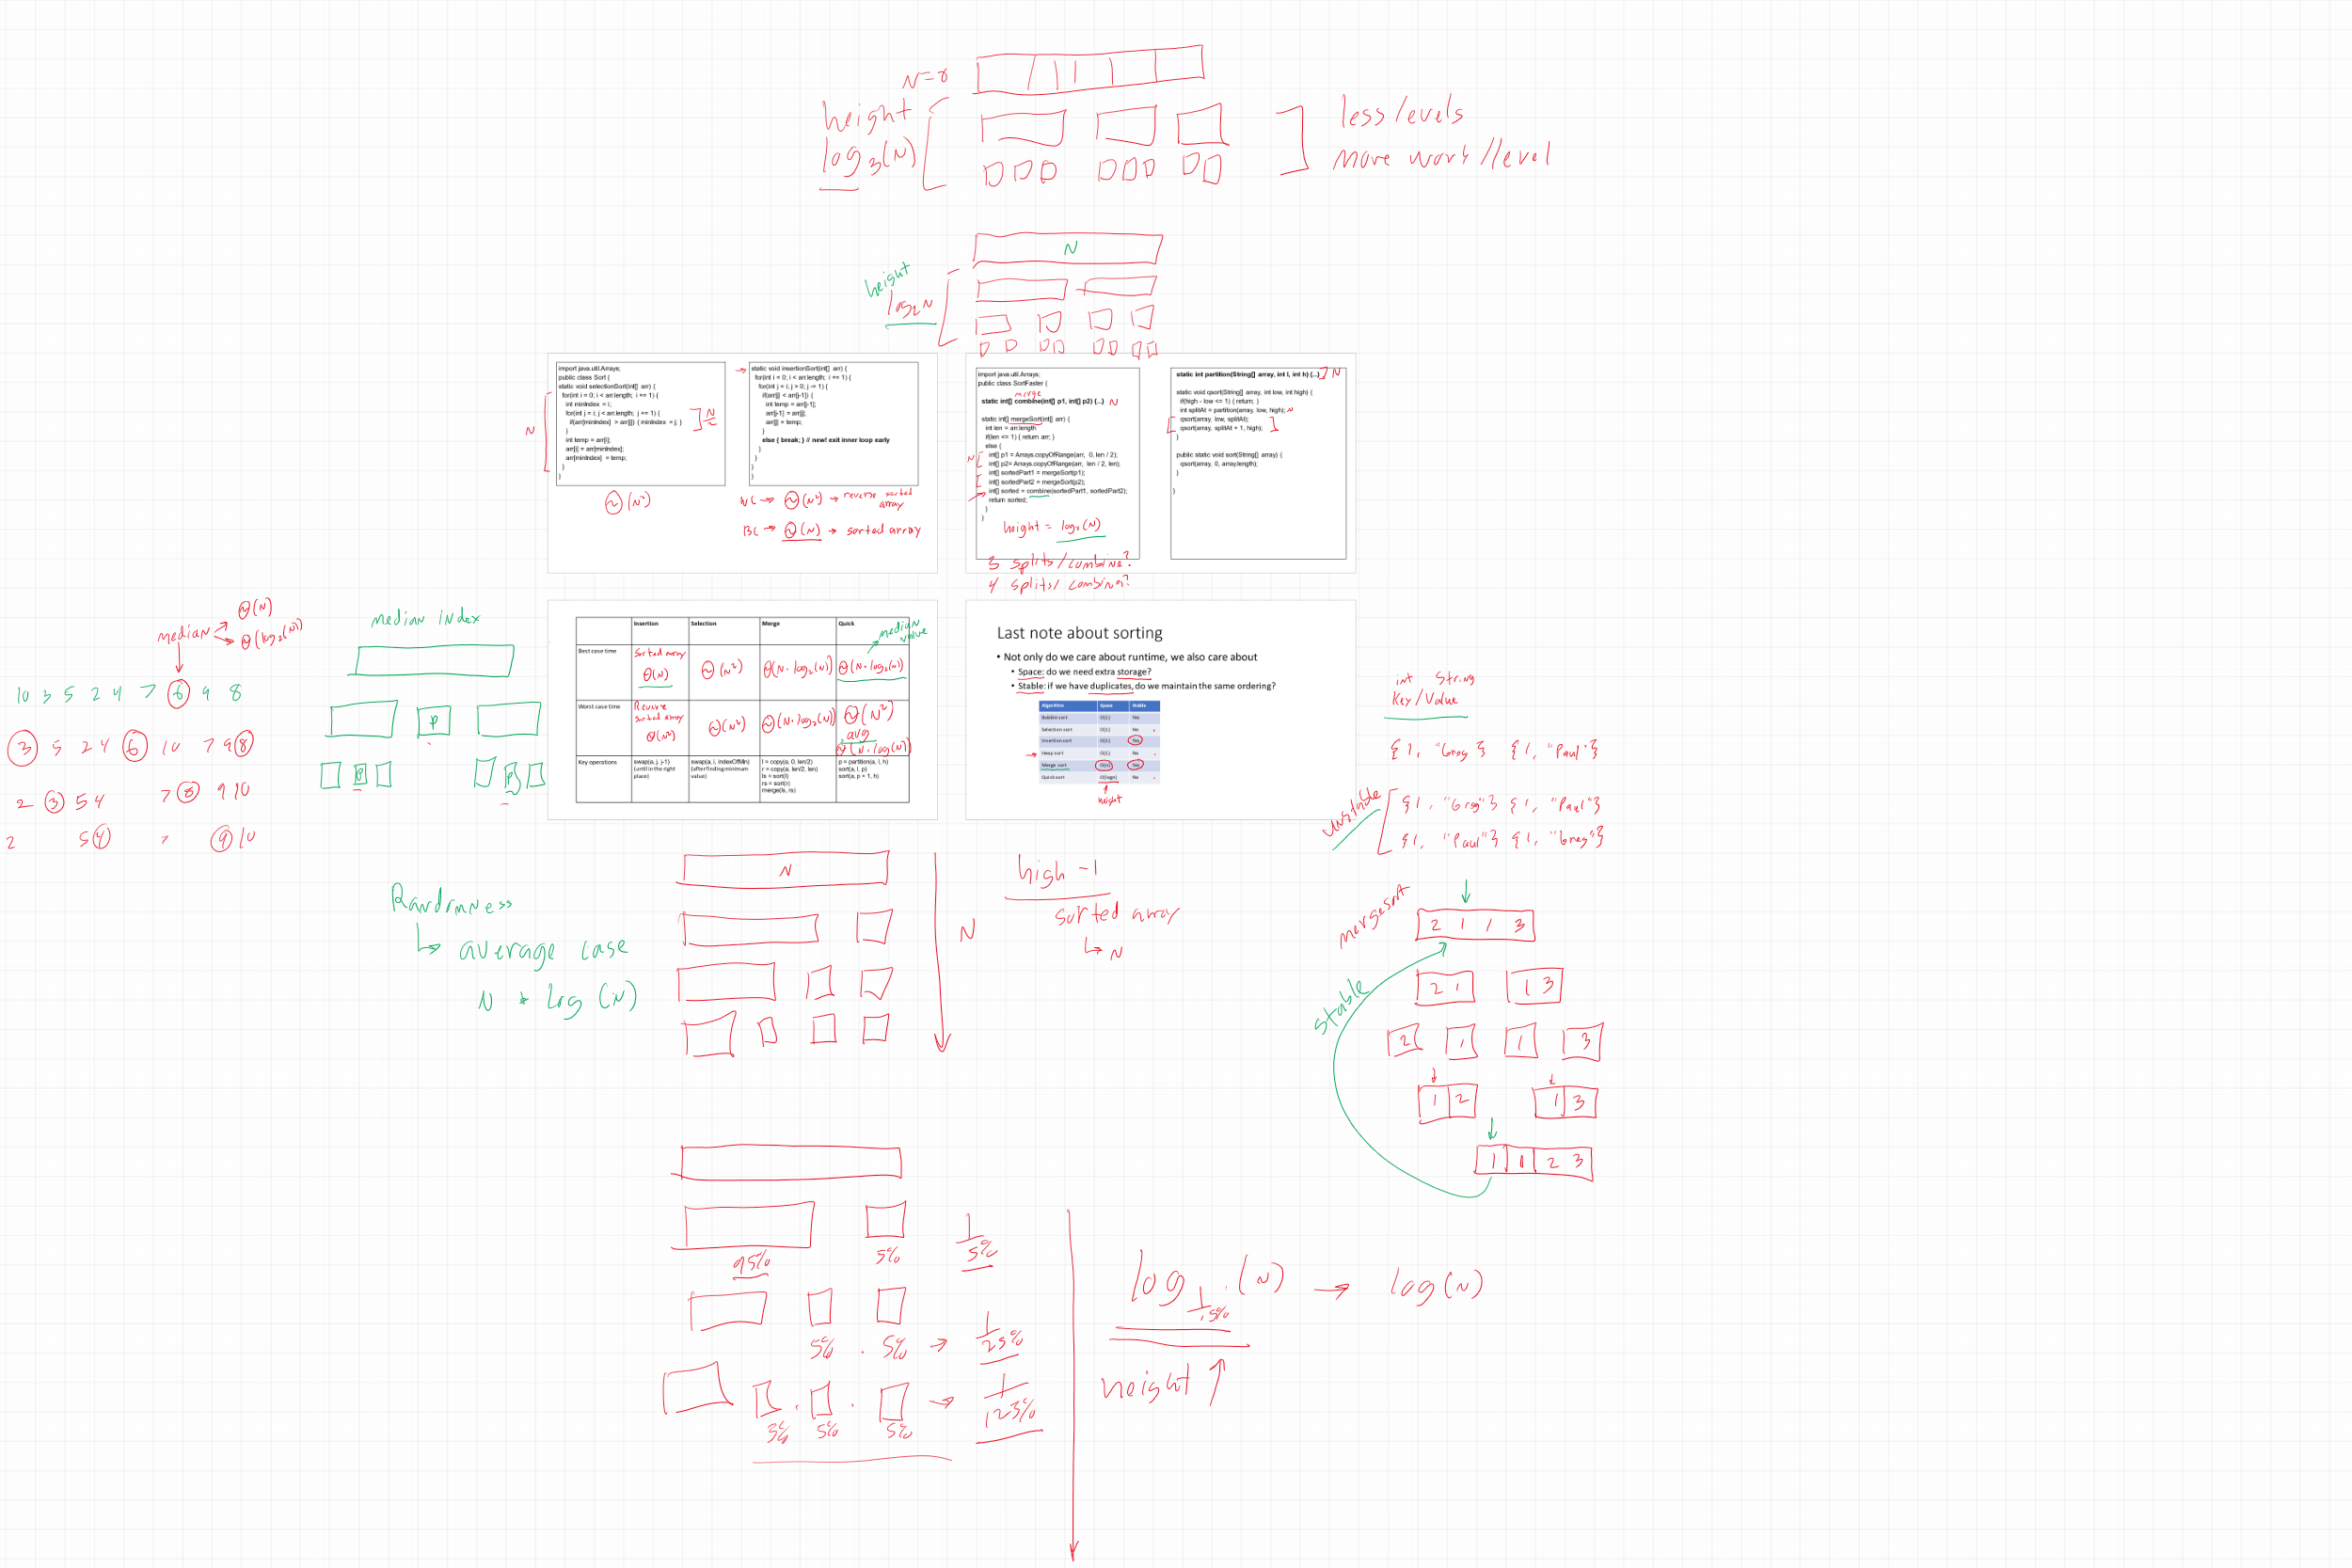 N=8
height
log₃(N)
less levels
more work/level
N
height
log₂N
import java.util.Arrays;
public class Sort {
static void selectionSort(int[] arr) {
for(int i = 0; i < arr.length; i += 1) {
int minIndex = i;
for(int j = i; j < arr.length; j += 1) {
if(arr[minIndex] > arr[j]) { minIndex = j; }
}
int temp = arr[i];
arr[i] = arr[minIndex];
arr[minIndex] = temp;
}
}
N
N
Θ(N²)
static void insertionSort(int[] arr) {
for(int i = 0; i < arr.length; i += 1) {
for(int j = i; j > 0; j -= 1) {
if(arr[j] < arr[j-1]) {
int temp = arr[j-1];
arr[j-1] = arr[j];
arr[j] = temp;
}
else { break; } // new! exit inner loop early
}
}
}
WC → Θ(N²) → reverse sorted
array
BC → Θ(N) → sorted array
import java.util.Arrays;
public class SortFaster {
merge
static int[] combine(int[] p1, int[] p2) {...} N
static int[] mergeSort(int[] arr) {
int len = arr.length
if(len <= 1) { return arr; }
else {
N
int[] p1 = Arrays.copyOfRange(arr, 0, len / 2);
int[] p2= Arrays.copyOfRange(arr, len / 2, len);
int[] sortedPart1 = mergeSort(p1);
int[] sortedPart2 = mergeSort(p2);
int[] sorted = combine(sortedPart1, sortedPart2);
return sorted;
}
}
height = log₂(N)
3 splits/combine?
4 splits/combine?
static int partition(String[] array, int l, int h) {...} N
static void qsort(String[] array, int low, int high) {
if(high - low <= 1) { return; }
int splitAt = partition(array, low, high); N
qsort(array, low, splitAt);
qsort(array, splitAt + 1, high);
}
public static void sort(String[] array) {
qsort(array, 0, array.length);
}
}
median → Θ(N)
→ Θ(log₂(N))
10 3 5 2 4 7 6 9 8
3 5 2 4 6 10 7 9 8
2 3 5 4 7 8 9 10
2 5 4 7 9 10
median index
P
P
P
Insertion Selection Merge Quick
median
value
Best case time
Sorted array
Θ(N)
Θ(N²)
Θ(N·log₂(N))
Θ(N·log₂(N))
Worst case time
Reverse
sorted array
Θ(N²)
Θ(N²)
Θ(N·log₂(N))
Θ(N²)
avg
Θ(N·log(N))
Key operations
swap(a, j, j-1)
(until in the right
place)
swap(a, i, indexOfMin)
(after finding minimum
value)
l = copy(a, 0, len/2)
r = copy(a, len/2, len)
ls = sort(l)
rs = sort(r)
merge(ls, rs)
p = partition(a, l, h)
sort(a, l, p)
sort(a, p + 1, h)
Last note about sorting
• Not only do we care about runtime, we also care about
• Space: do we need extra storage?
• Stable: if we have duplicates, do we maintain the same ordering?
Algorithm Space Stable
Bubble sort O(1) Yes
Selection sort O(1) No
Insertion sort O(1) Yes
Heap sort O(1) No
Merge sort O(n) Yes
Quick sort O(logn) No
height
int String
Key/Value
{1, "Greg"} {1, "Paul"}
unstable
{1, "Greg"} {1, "Paul"}
{1, "Paul"} {1, "Greg"}
Randomness
↳ average case
N * log(N)
N
N
high -1
sorted array
↳ N
mergesort
2 1 1 3
2 1 1 3
stable
2 1 1 3
1 2 1 3
1 1 2 3
95% 5%
1
5%
5% . 5% →
1
25%
5% . 5% →
1
125%
log (N) → log(N)
1
.5%
height ↑